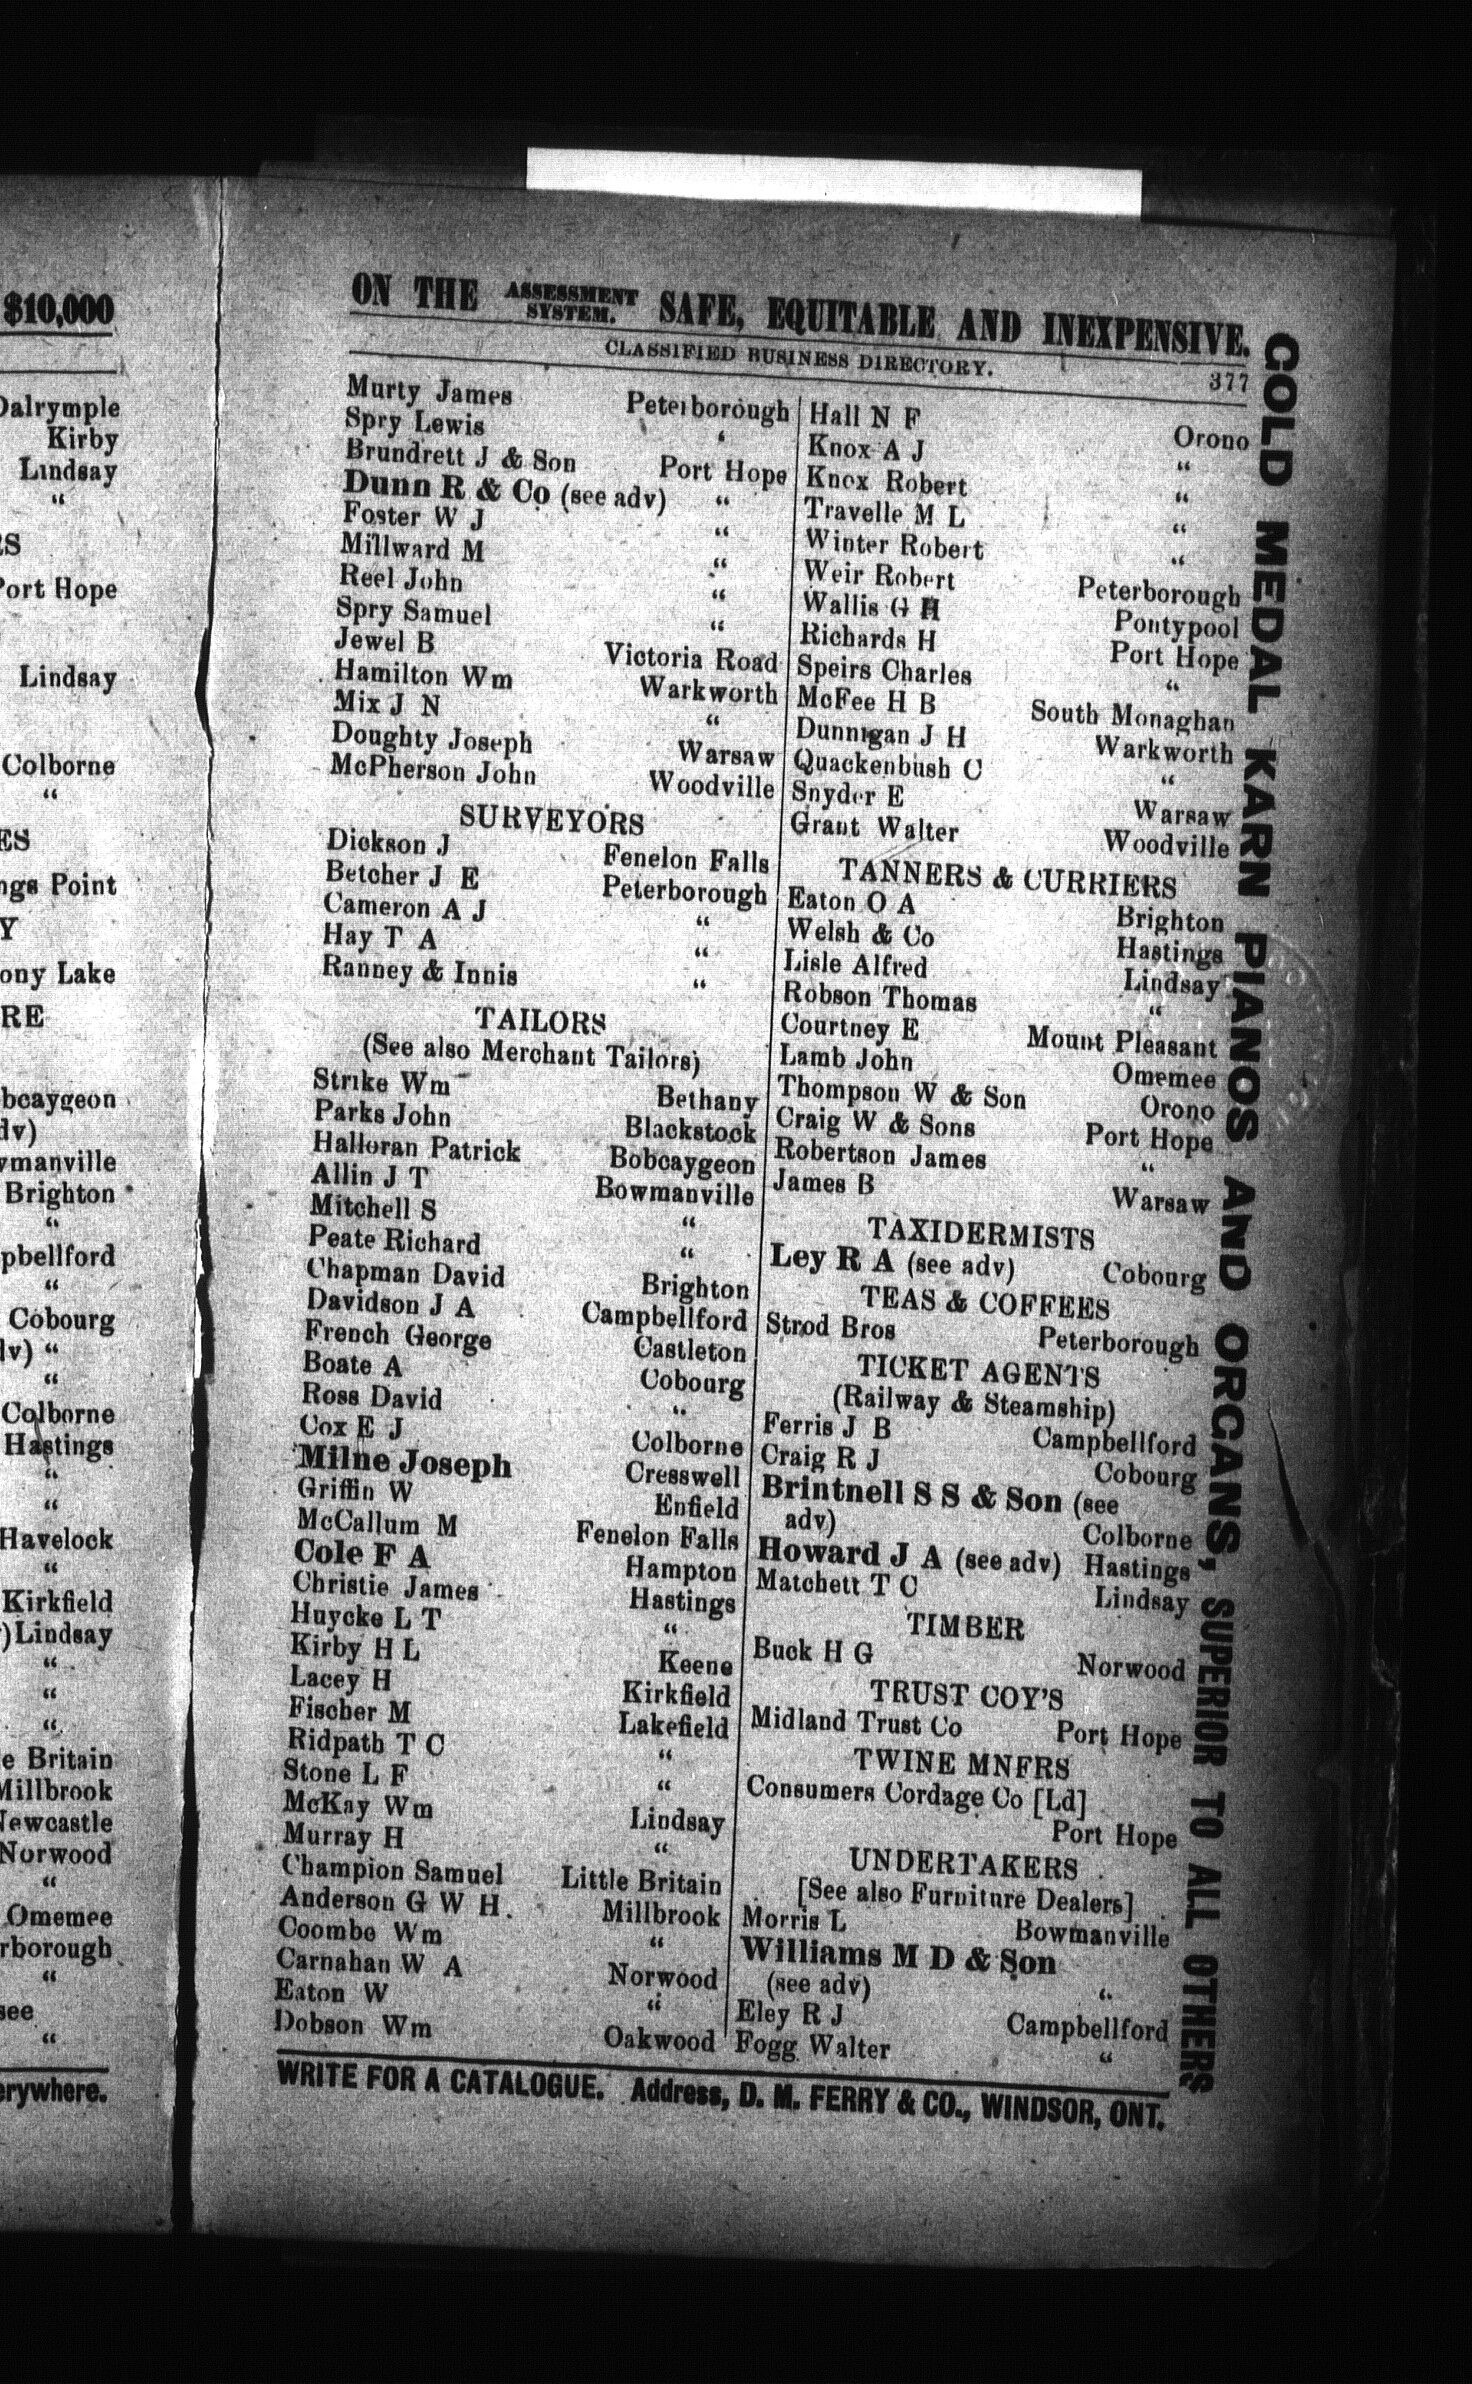 $10,000
Dalrymple
Kirby
Lindsay
"
RS
Port Hope
Lindsay
Colborne
"
ES
ngs Point
Y
ony Lake
RE
bcaygeon
dv)
wmanville
Brighton
"
pbellford
"
Cobourg
lv) "
"
Colborne
Hastings
"
"
Havelock
"
Kirkfield
)Lindsay
"
"
"
e Britain
Millbrook
Newcastle
Norwood
"
Omemee
rborough
"
see
"
erywhere.
ON THE ASSESSMENT SYSTEM. SAFE, EQUITABLE AND INEXPENSIVE.
CLASSIFIED BUSINESS DIRECTORY. 377
Murty James Peterborough
Spry Lewis "
Brundrett J & Son Port Hope
Dunn R & Co (see adv) "
Foster W J "
Millward M "
Reel John "
Spry Samuel "
Jewel B Victoria Road
Hamilton Wm Warkworth
Mix J N "
Doughty Joseph Warsaw
McPherson John Woodville
SURVEYORS
Dickson J Fenelon Falls
Betcher J E Peterborough
Cameron A J "
Hay T A "
Ranney & Innis "
TAILORS
(See also Merchant Tailors)
Strike Wm Bethany
Parks John Blackstock
Halloran Patrick Bobcaygeon
Allin J T Bowmanville
Mitchell S "
Peate Richard "
Chapman David Brighton
Davidson J A Campbellford
French George Castleton
Boate A Cobourg
Ross David "
Cox E J Colborne
Milne Joseph Cresswell
Griffin W Enfield
McCallum M Fenelon Falls
Cole F A Hampton
Christie James Hastings
Huycke L T "
Kirby H L Keene
Lacey H Kirkfield
Fischer M Lakefield
Ridpath T C "
Stone L F "
McKay Wm Lindsay
Murray H "
Champion Samuel Little Britain
Anderson G W H. Millbrook
Coombe Wm "
Carnahan W A Norwood
Eaton W "
Dobson Wm Oakwood
Hall N F Orono
Knox A J "
Knox Robert "
Travelle M L "
Winter Robert "
Weir Robert Peterborough
Wallis G H Pontypool
Richards H Port Hope
Speirs Charles "
McFee H B South Monaghan
Dunnigan J H Warkworth
Quackenbush C "
Snyder E Warsaw
Grant Walter Woodville
TANNERS & CURRIERS
Eaton O A Brighton
Welsh & Co Hastings
Lisle Alfred Lindsay
Robson Thomas "
Courtney E Mount Pleasant
Lamb John Omemee
Thompson W & Son Orono
Craig W & Sons Port Hope
Robertson James "
James B Warsaw
TAXIDERMISTS
Ley R A (see adv) Cobourg
TEAS & COFFEES
Strod Bros Peterborough
TICKET AGENTS
(Railway & Steamship)
Ferris J B Campbellford
Craig R J Cobourg
Brintnell S S & Son (see
adv) Colborne
Howard J A (see adv) Hastings
Matchett T C Lindsay
TIMBER
Buck H G Norwood
TRUST COY'S
Midland Trust Co Port Hope
TWINE MNFRS
Consumers Cordage Co [Ld]
Port Hope
UNDERTAKERS
[See also Furniture Dealers]
Morris L Bowmanville
Williams M D & Son
(see adv) "
Eley R J Campbellford
Fogg Walter "
WRITE FOR A CATALOGUE. Address, D. M. FERRY & CO., WINDSOR, ONT.
GOLD MEDAL KARN PIANOS AND ORGANS, SUPERIOR TO ALL OTHERS